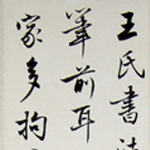 王氏書法
筆前耳
家多拘